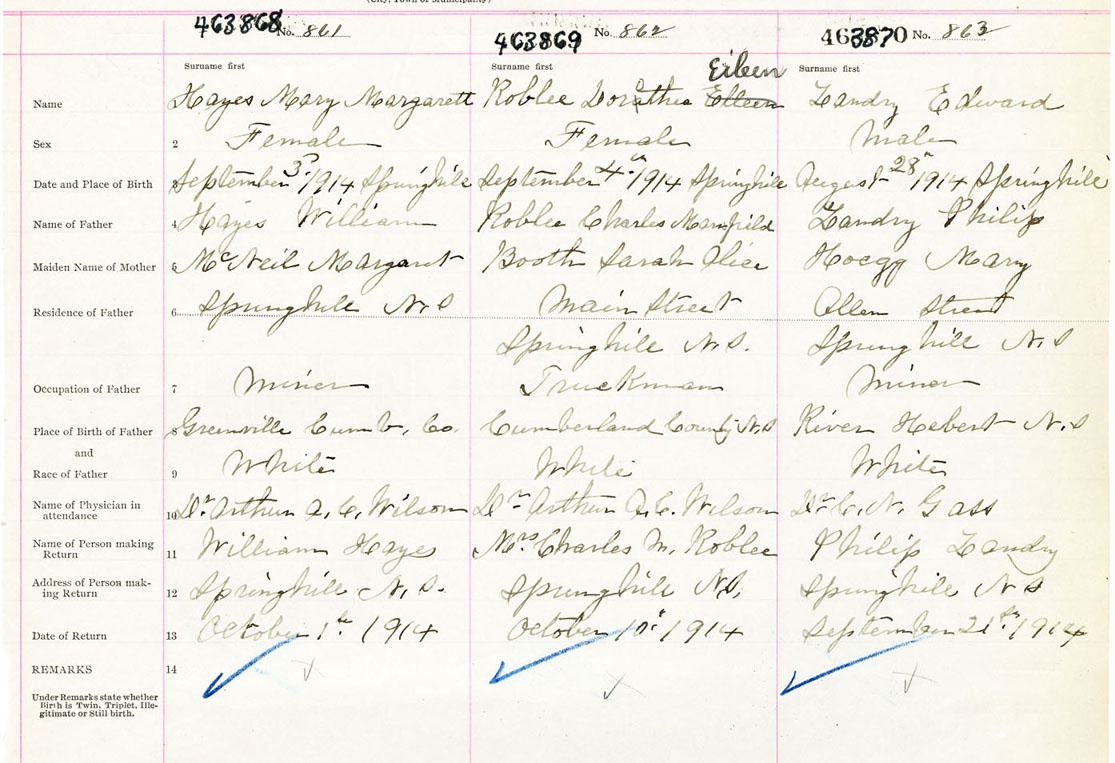 (City, Town or Municipality)
463868 No. 861 463869 No. 862 463870 No. 863
Surname first Surname first Eileen Surname first
Name Hayes Mary Margarett Roblee Dorathea Elleen Landry Edward
Sex 2 Female Female Male
Date and Place of Birth 3 September 3rd 1914 Springhill September 4th 1914 Springhill August 28th 1914 Springhill
Name of Father 4 Hayes William Roblee Charles Manfield Landry Philip
Maiden Name of Mother 5 McNeil Margaret Booth Sarah Alice Hoegg Mary
Residence of Father 6 Springhill N.S Main Street Allen Street
Springhill N.S. Springhill N.S
Occupation of Father 7 Miner Truckman Miner
Place of Birth of Father 8 Greenville Cumb, Co. Cumberland County N.S River Hebert N.S
and
Race of Father 9 White White White
Name of Physician in
attendance 10 Dr Arthur A.C. Wilson Dr Arthur A.C. Wilson Dr C. N. Gass
Name of Person making
Return 11 William Hayes Mrs Charles M. Roblee Philip Landry
Address of Person mak-
ing Return 12 Springhill N.S. Springhill N.S. Springhill N S
Date of Return 13 October 1st 1914 October 1914 September 21st 1914
REMARKS 14
Under Remarks state whether
Birth is Twin, Triplet, Ille-
gitimate or Still birth.